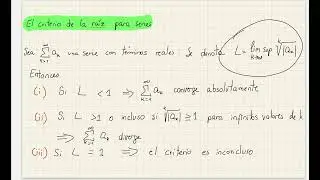 El criterio de la raíz para series
Sea \sum_{k=1}^{\infty} a_k una serie con términos reales. Se denota L = lim sup_{k→∞} \sqrt[k]{|a_k|}
Entonces
(i) Si L < 1 ⇒ \sum_{k=1}^{\infty} a_k converge absolutamente
(ii) Si L > 1 o incluso si \sqrt[k]{|a_k|} ≥ 1 para infinitos valores de k
⇒ \sum_{k=1}^{\infty} a_k diverge
(iii) Si L = 1 ⇒ el criterio es inconcluso